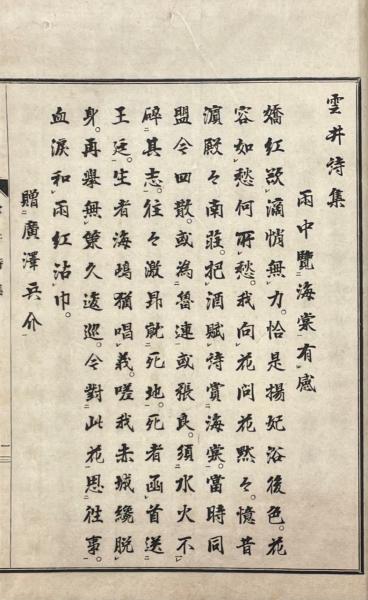 雲井詩集
雨中覽海棠有感
嬌紅欲滴悄無力。恰是揚妃浴後色。花
容如愁何所愁。我向花問花默々。憶昔
濵殿々南莊。把酒賦詩賞海棠。當時同
盟今四散。或為魯連或張良。須水火不
碎其志。往々激昂就死地。死者函首送
王廷。生者海島猶唱義。嗟我赤城纔脱
身。再舉無策久逡巡。今對此花思往事。
血淚和雨紅沾巾。
贈廣澤兵介